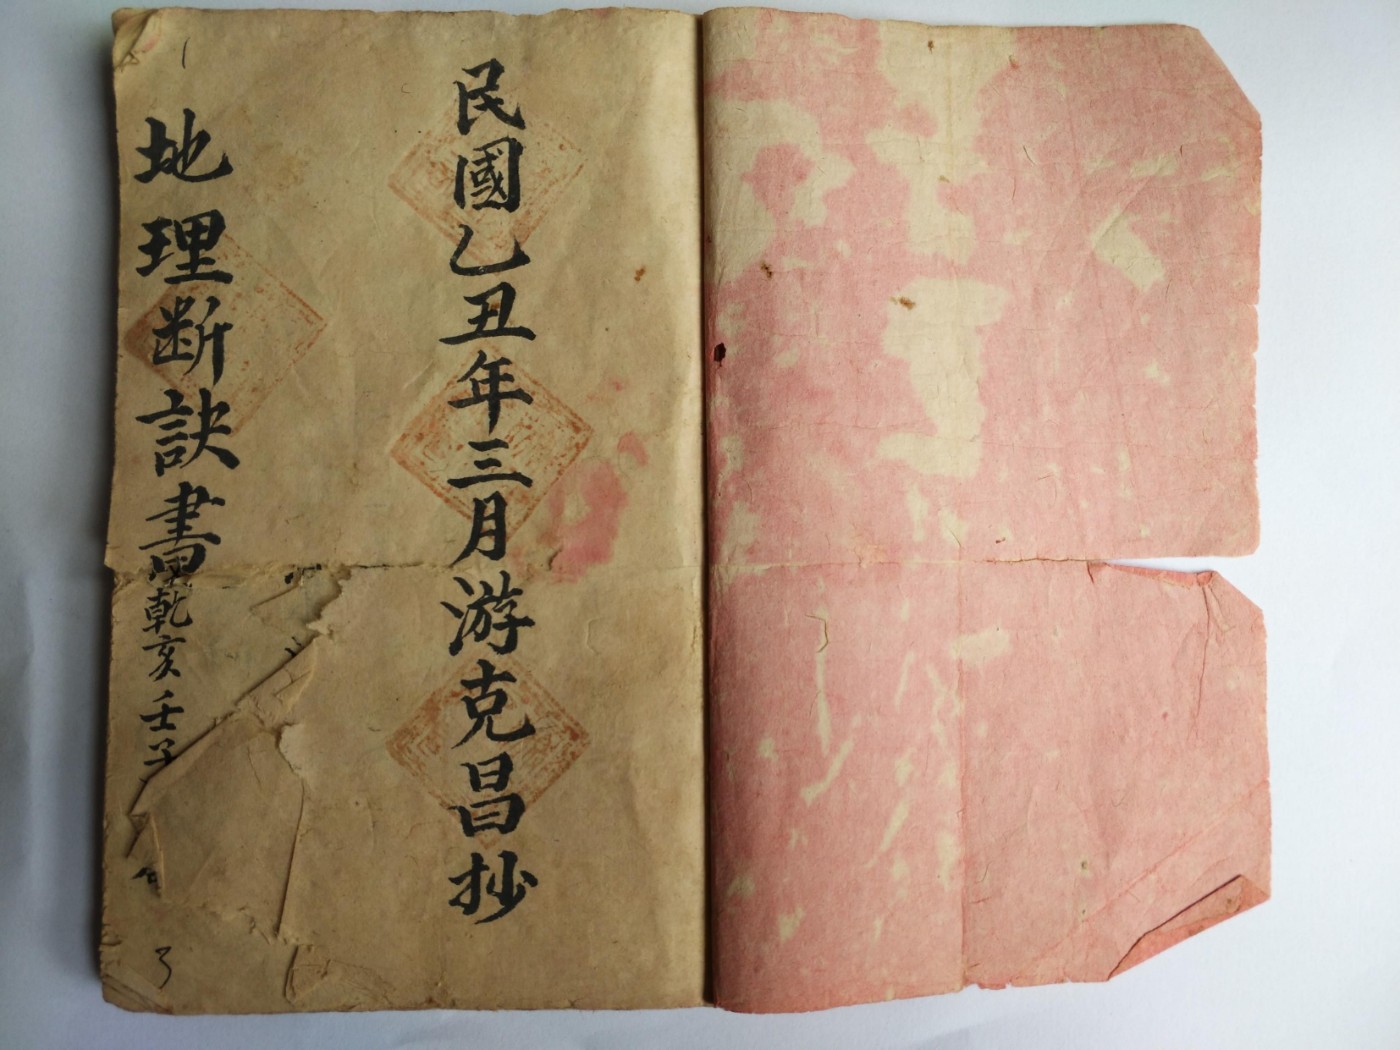 民國乙丑年三月游克昌抄
地理断訣書乾亥壬子